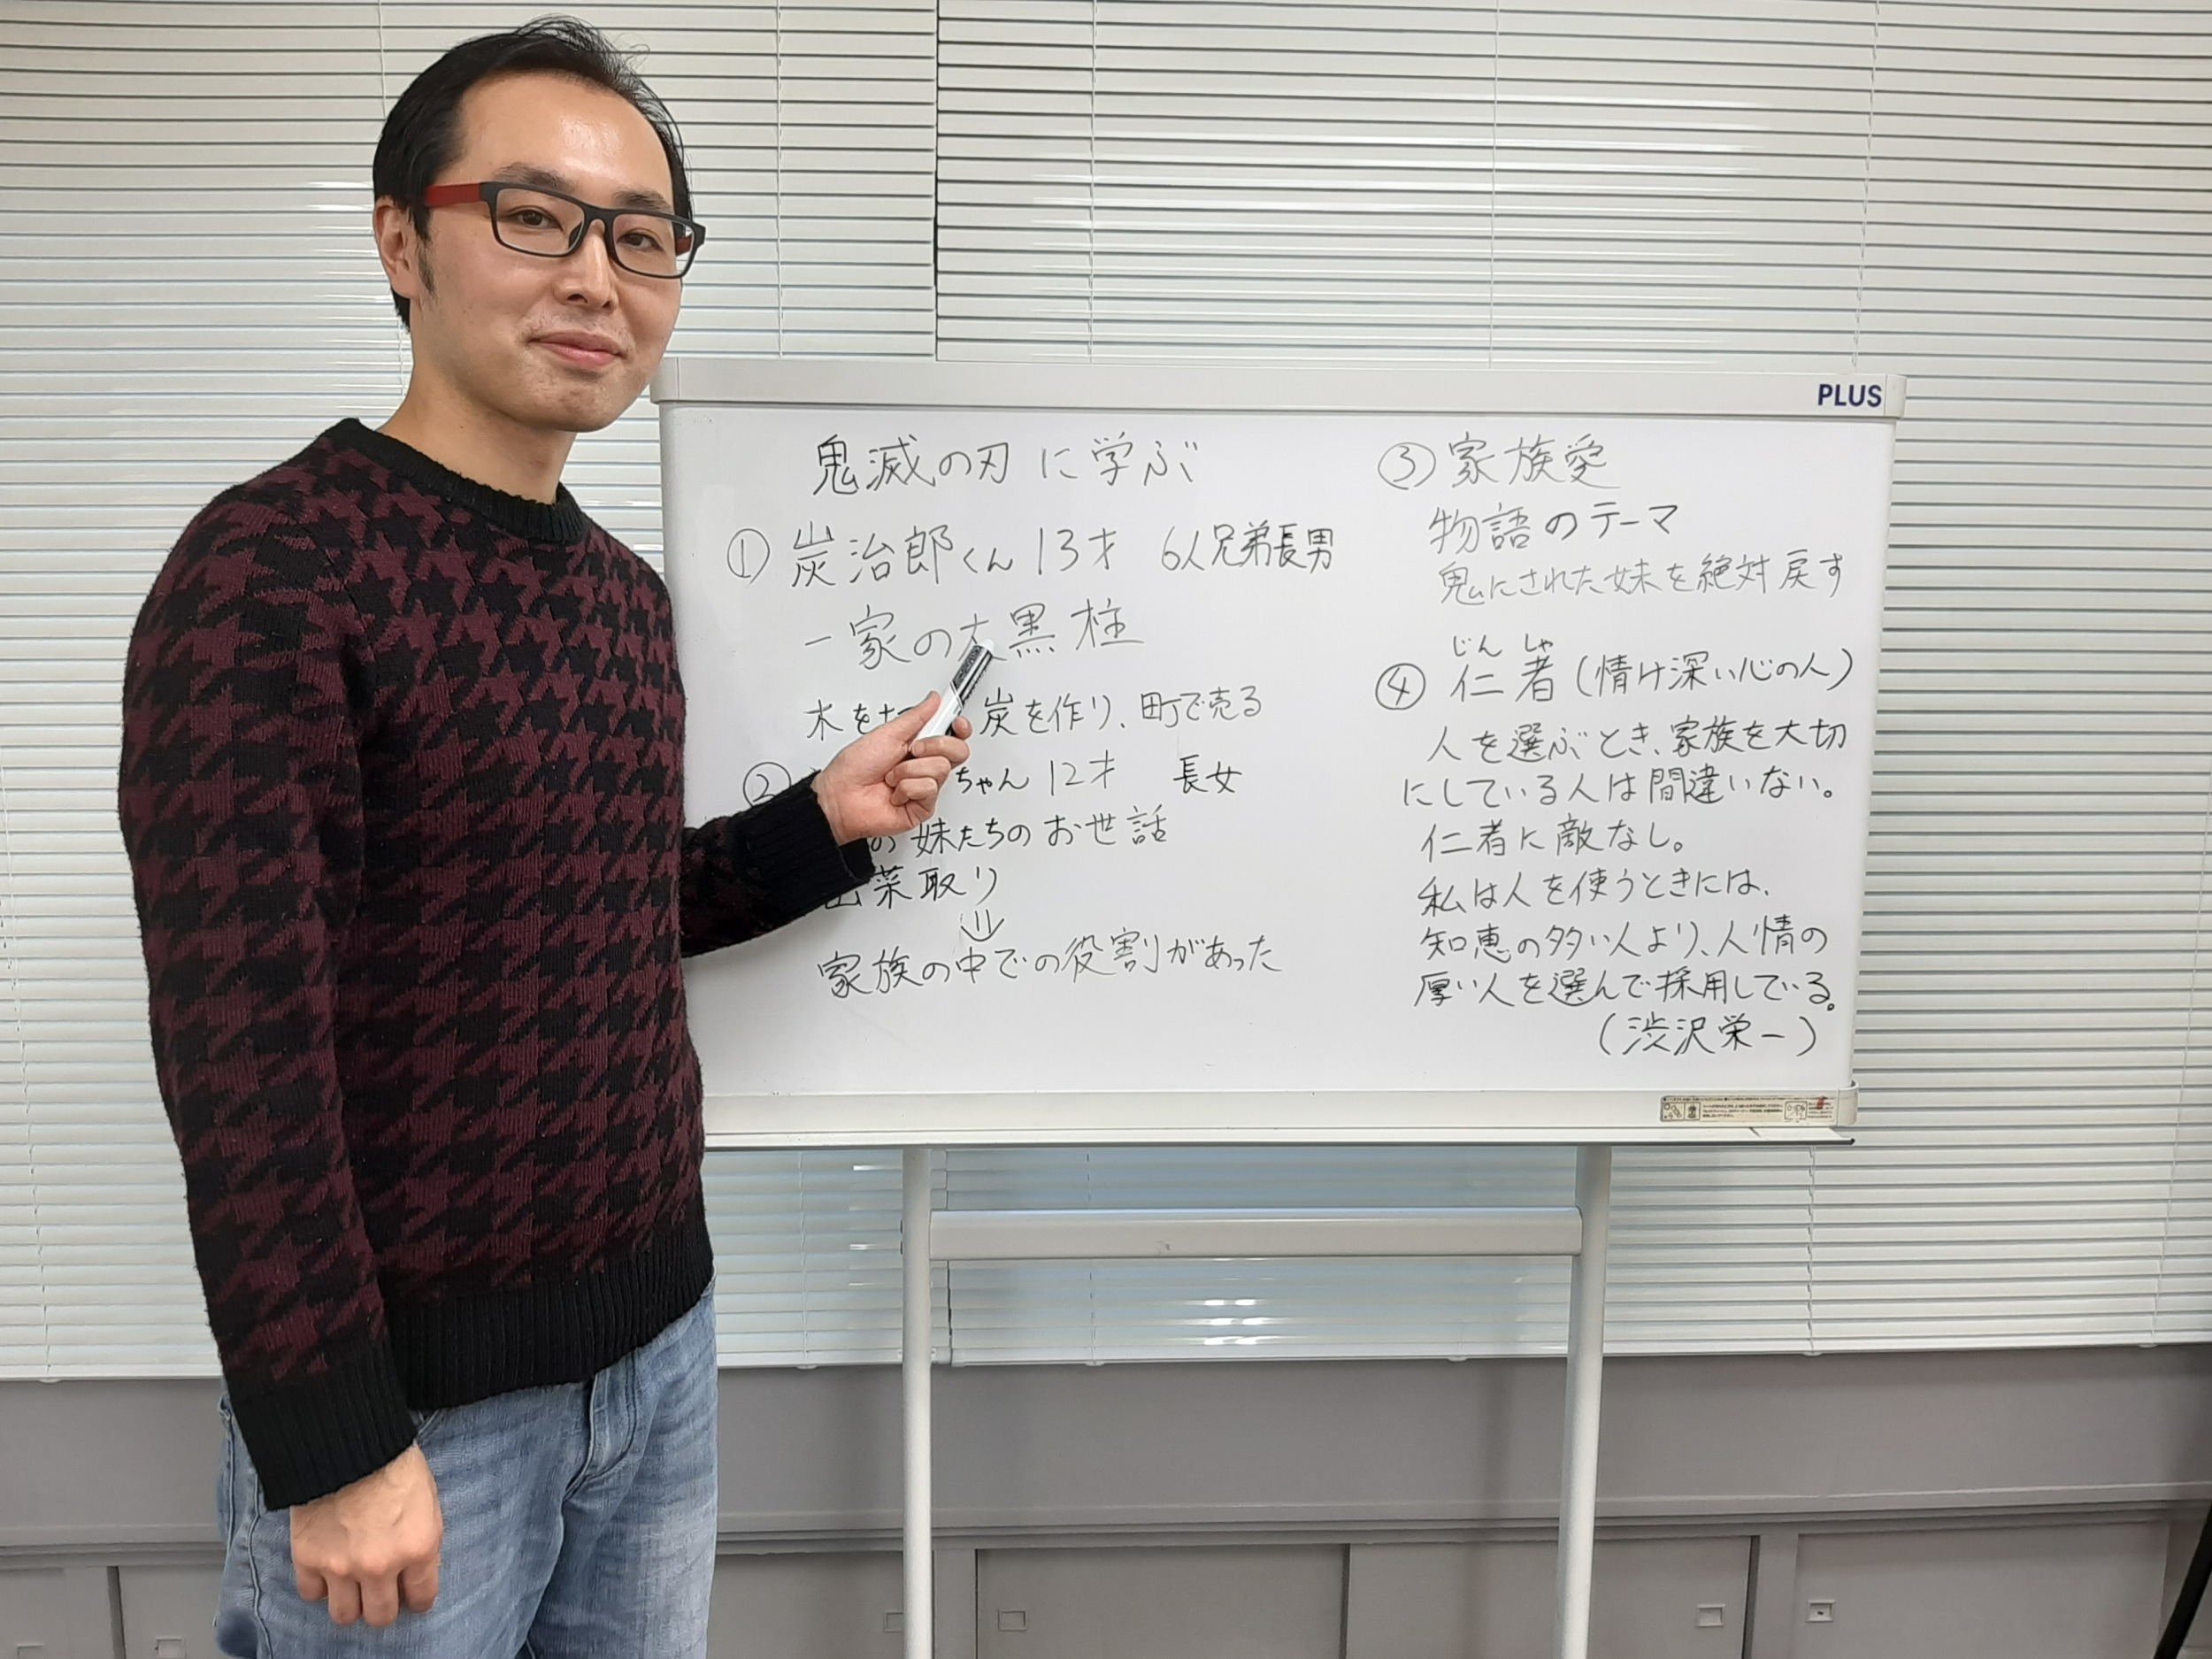 PLUS
鬼滅の刃に学ぶ
① 炭治郎くん 13才 6人兄弟長男
一家の大黒柱
木を 炭を作り、町で売る
② ちゃん 12才 長女
の妹たちのお世話
山菜取り
⇓
家族の中での役割があった
③ 家族愛
物語のテーマ
鬼にされた妹を絶対戻す
じん しゃ
④ 仁者(情け深い心の人)
人を選ぶとき、家族を大切
にしている人は間違いない。
仁者に敵なし。
私は人を使うときには、
知恵の多い人より、人情の
厚い人を選んで採用している。
(渋沢栄一)